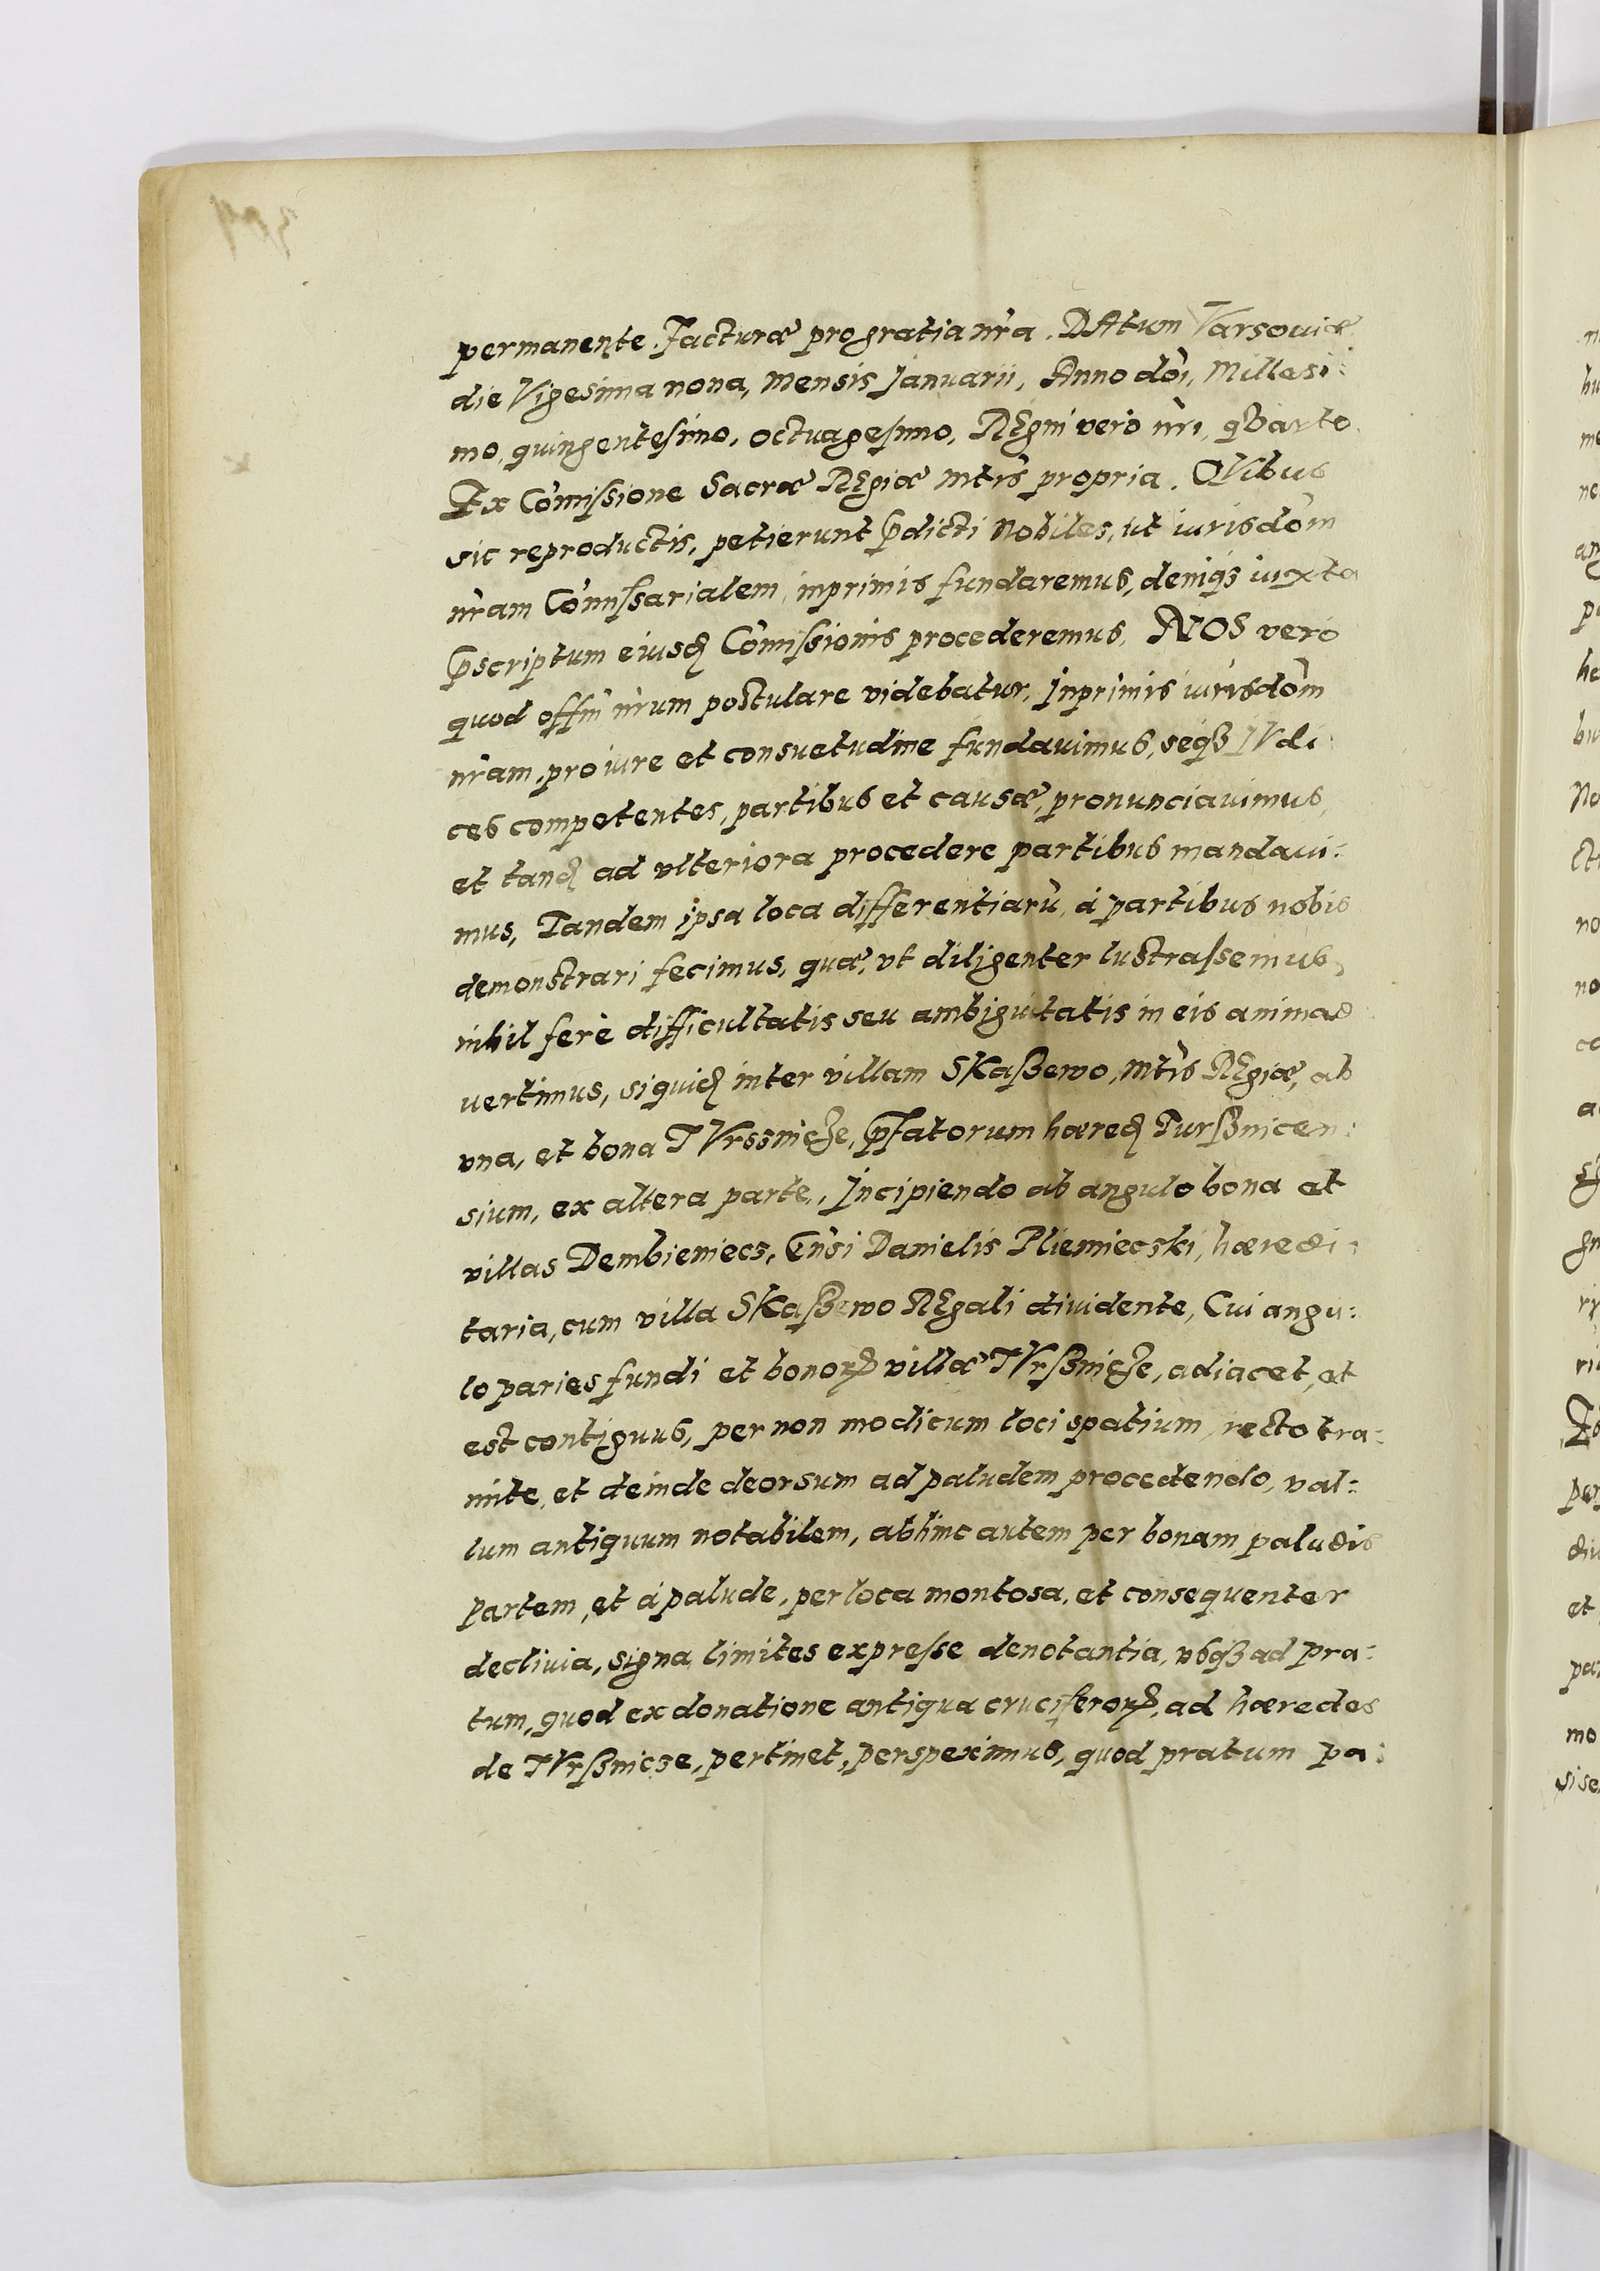 permanente. Facturæ pro gratia nr̃a. DAtum Varsouiæ
die Vigesima nona, Mensis Januarii, Anno dñi, Millesi:
mo, quingentesimo, octuagesimo, REgni vero nr̃i, qVarto.
Ex Com̃issione Sacræ REgiæ Mtis propria. QVibus
sic reproductis, petierunt p̃dicti Nobiles, ut iurisdom̃
nr̃am Com̃issarialem, inprimis fundaremus, deniqȝ iuxta
p̃scriptum eiusdȩ Com̃issionis procederemus, NOS vero
quod offm̃ nr̃um postulare videbatur, Inprimis iurisdom̃
nr̃am, pro iure et consuetudine fundauimus, seqȝ IVdi:
ces competentes, partibus et causæ, pronunciauimus,
et tandȩ ad vlteriora procedere partibus mandaui:
mus, Tandem ipsa loca differentiarũ, à partibus nobis
demonstrari fecimus, quæ, vt diligenter lustrassemus,
nihil ferè difficultatis seu ambiguitatis in eis animad
uertimus, siquidȩ inter villam SKaßewo, Mtis REgiæ, ab
vna, et bona TVrssnicze, p̃fatorum hæredȩ Turßnicen:
sium, ex altera parte, Incipiendo ab angulo bona et
villas Dembieniecz, Gn̄si Danielis Plemiecski, hæredi:
taria, cum villa SKaßewo REgali diuidente, Cui angu:
lo paries fundi et bonorꝝ villæ TVrßnicze, adiacet, et
est contiguus, per non modicum loci spatium, recto tra:
mite, et deinde deorsum ad paludem procedendo, val:
lum antiquum notabilem, abhinc autem per bonam paludis
partem, et à palude, per loca montosa, et consequenter
decliuia, signa limites expresse denotantia, vsqȝ ad pra:
tum, quod ex donatione antiqua cruciferorꝝ, ad hæredes
de TVrßnicze, pertinet, perspeximus, quod pratum pa: